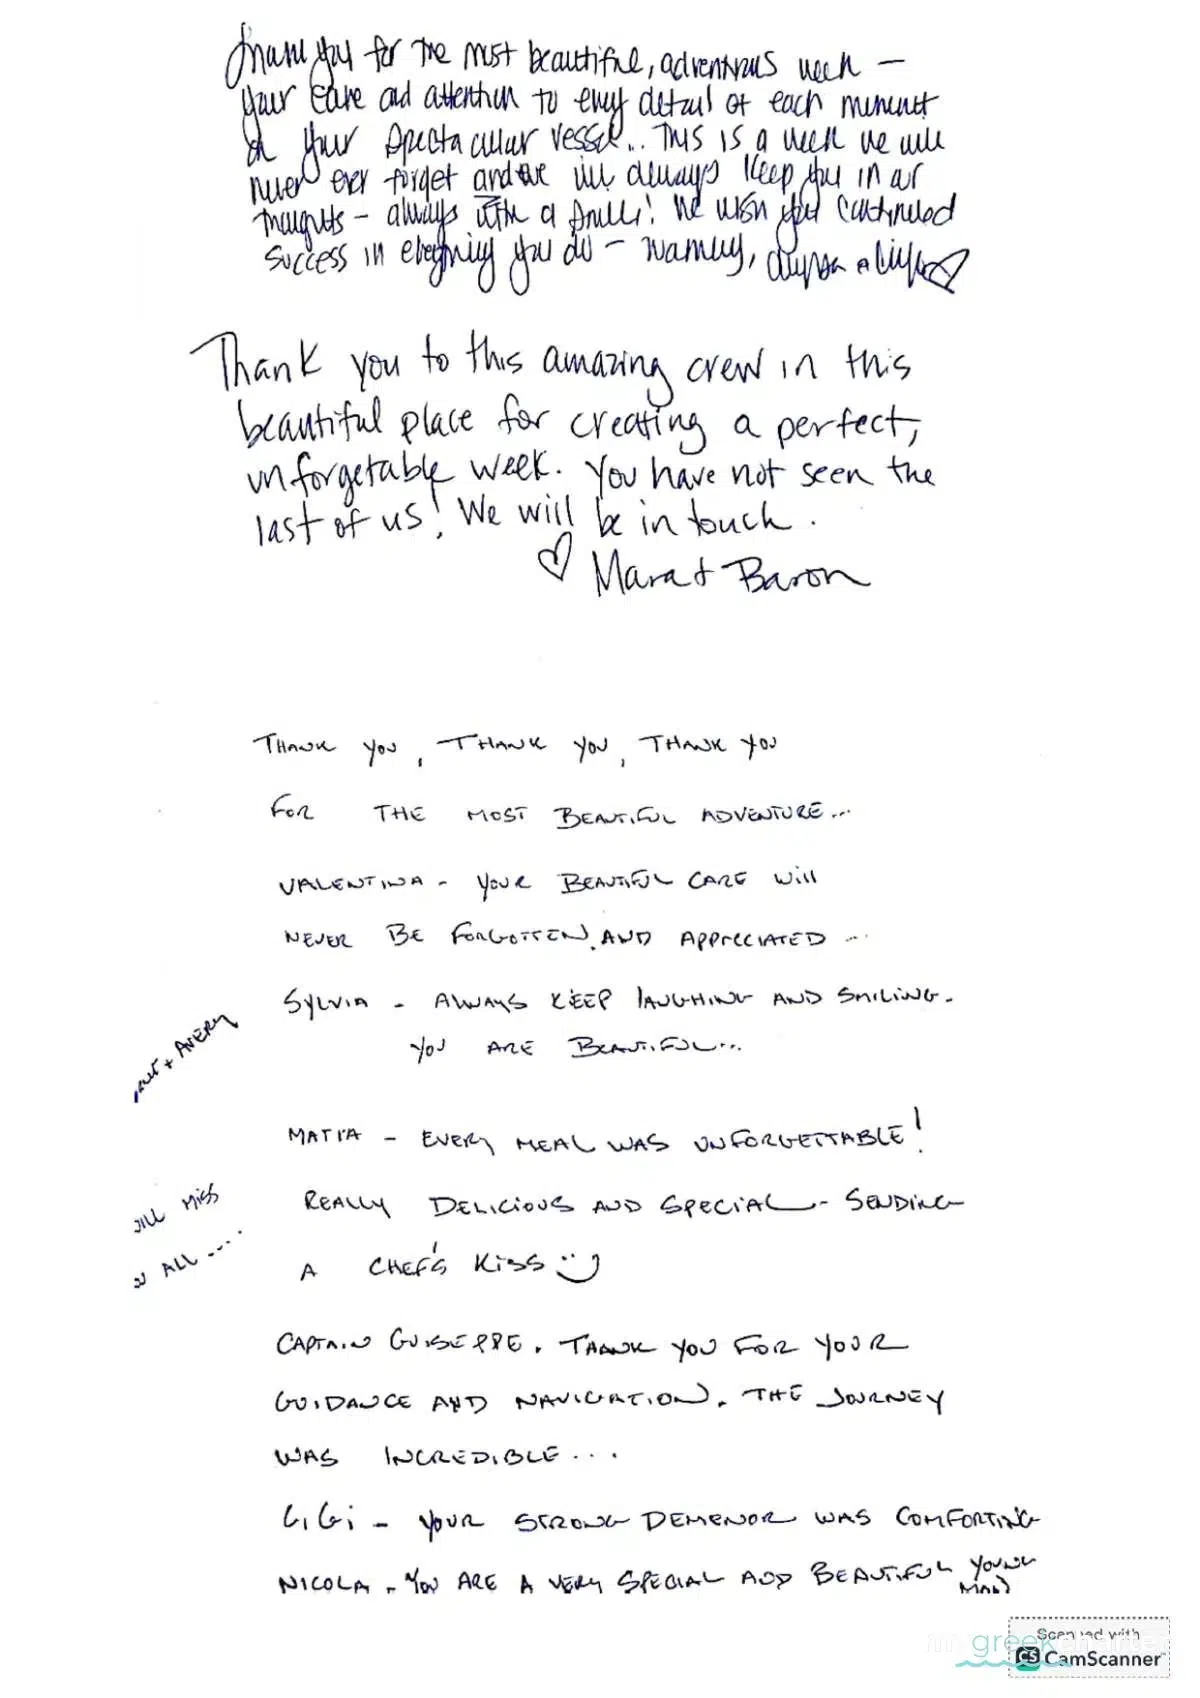 Thank you for the most beautiful, adventurous week —
your care and attention to every detail of each moment
on your spectacular vessel... This is a week we will
never ever forget and we will always keep you in our
thoughts — always with a smile! We wish you continued
success in everything you do —
Thank you to this amazing crew in this
beautiful place for creating a perfect,
unforgetable week. You have not seen the
last of us! We will be in touch.
♡ Mara + Baron
THANK YOU, THANK YOU, THANK YOU
FOR THE MOST BEAUTIFUL ADVENTURE...
VALENTINA - YOUR BEAUTIFUL CARE WILL
NEVER BE FORGOTTEN AND APPRECIATED ...
SYLVIA - ALWAYS KEEP LAUGHING AND SMILING.
YOU ARE BEAUTIFUL...
+ AVERY
MATIA - EVERY MEAL WAS UNFORGETTABLE!
REALLY DELICIOUS AND SPECIAL - SENDING
A CHEF'S KISS
MISS
ALL ....
CAPTAIN GUISEPPE. THANK YOU FOR YOUR
GUIDANCE AND NAVIGATION. THE JOURNEY
WAS INCREDIBLE...
GIGI - YOUR STRONG DEMENOR WAS COMFORTING
NICOLA - YOU ARE A VERY SPECIAL AND BEAUTIFUL YOUNG
MAN
Scanned with
my greek charter
CS CamScanner